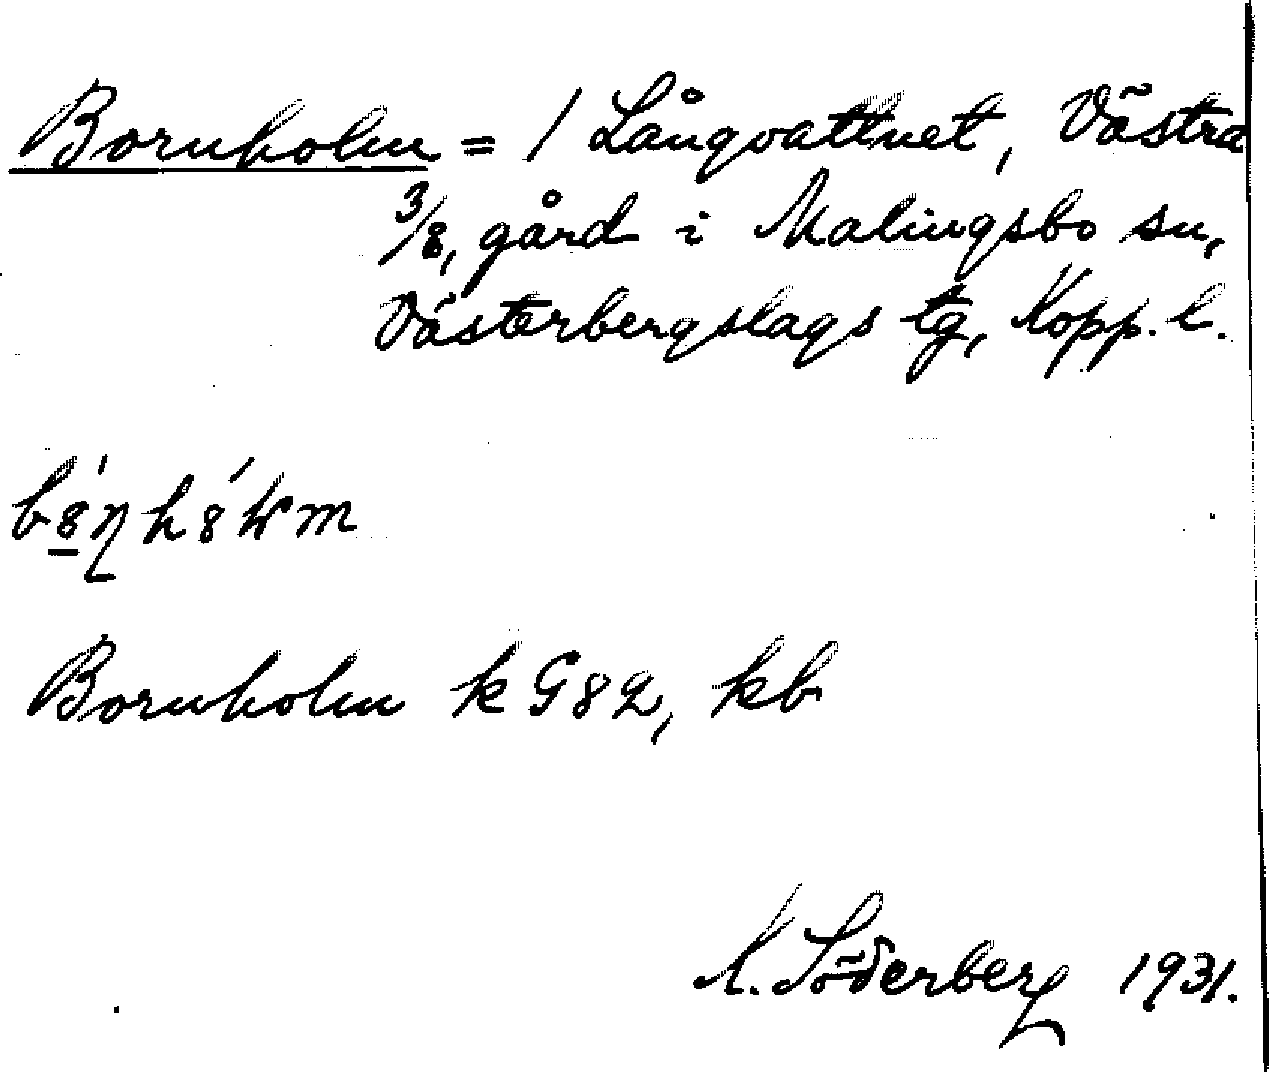 Bornholm = / Långvattnet, Västra
3/8, gård i Malingsbo sn,
Västerbergslags tg, Kopp. l.
Bornholm k G82, kb
K. Söderberg 1931.